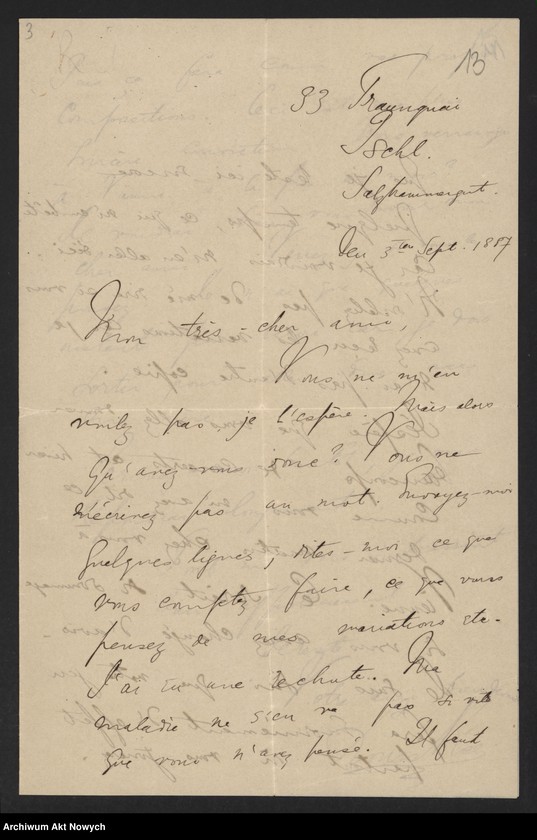 3
13
33 Traunquai
Ischl.
Salzkammergut.
Den 3ten Sept. 1887
Mon très-cher ami,
Vous ne m'en
voulez pas, je l'espère. Mais alors
qu'avez-vous donc? Vous ne
m'écrivez pas un mot. Envoyez-moi
quelques lignes, dites-moi ce que
vous comptez faire, ce que vous
pensez de mes variations etc.
J'ai eu une rechute. Ma
maladie ne s'en va pas si vite
que vous n'avez pensé. Il faut
Archiwum Akt Nowych